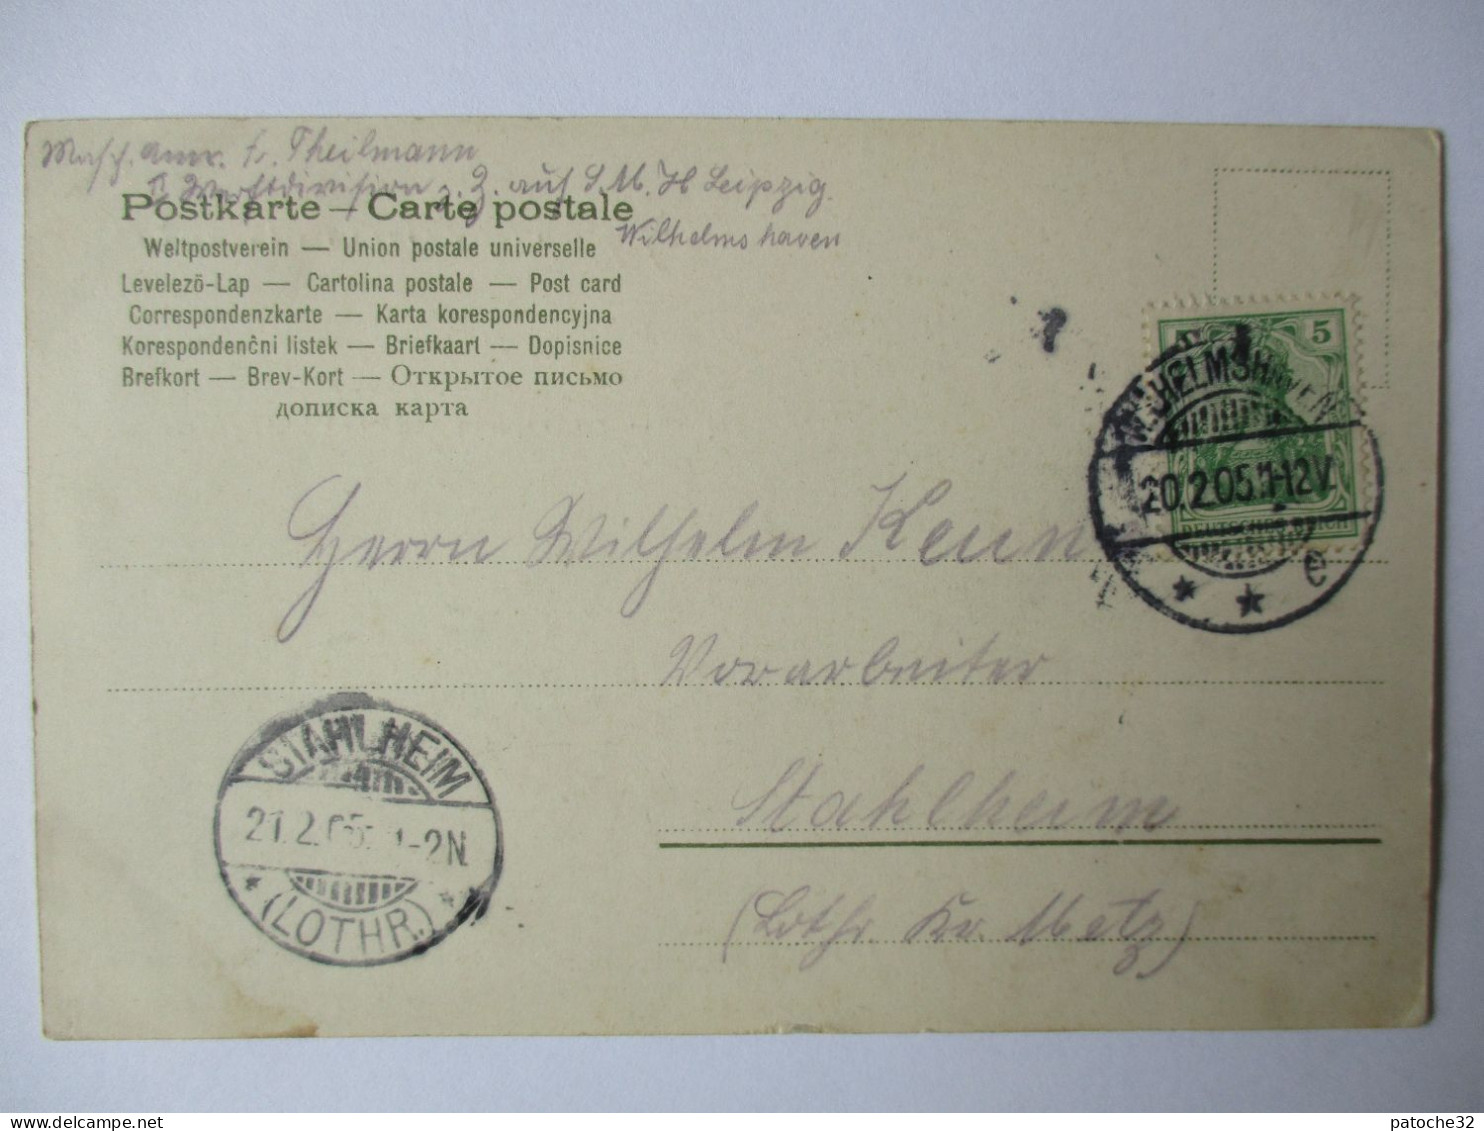 Masch. Anw. L. Theilmann
II Werftdivision z. Z. auf S. M. H Leipzig.
Wilhelmshaven
Postkarte — Carte postale
Weltpostverein — Union postale universelle
Levelezö-Lap — Cartolina postale — Post card
Correspondenzkarte — Karta korespondencyjna
Korespondenčni listek — Briefkaart — Dopisnice
Brefkort — Brev-Kort — Открытое письмо
дописка карта
5
WILHELMSHAVEN
20.2.05.11-12V.
DEUTSCHES REICH
* * e
Herrn Wilhelm Keun
Vorarbeiter
STAHLHEIM
21.2.05. 1-2N.
* (LOTHR.) **
Stahlheim
(Lothr Kr. Metz)
patoche32